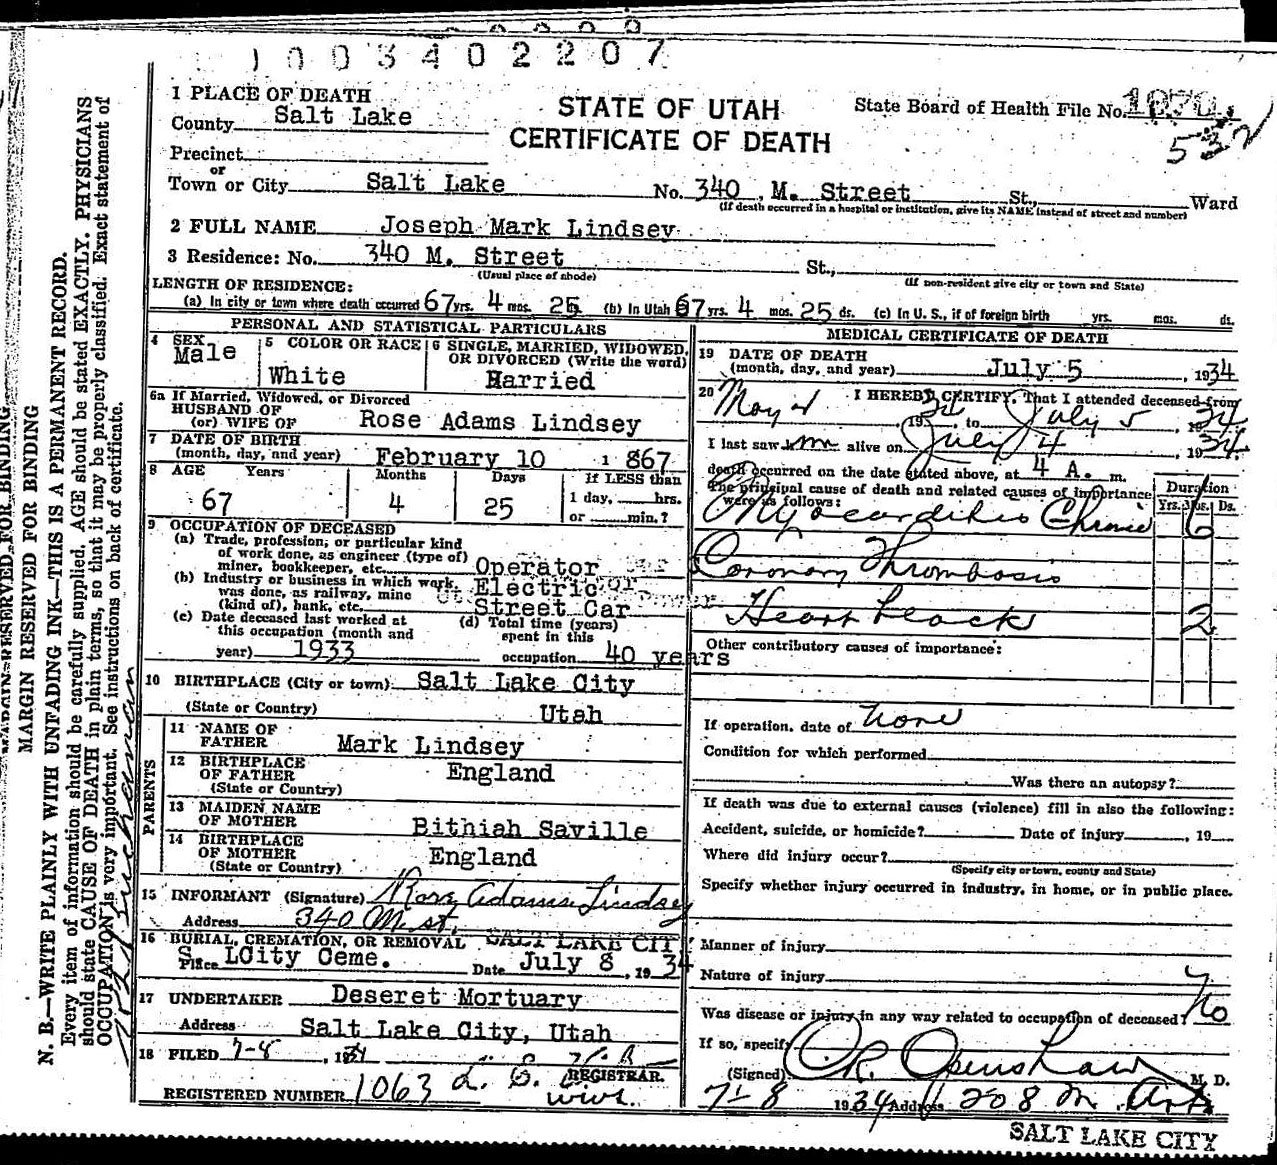 1003402207
1 PLACE OF DEATH
County Salt Lake
STATE OF UTAH
CERTIFICATE OF DEATH
State Board of Health File No.
532
Precinct
or
Town or City Salt Lake No. 340 M. Street St., Ward
(If death occurred in a hospital or institution, give its NAME instead of street and number)
2 FULL NAME Joseph Mark Lindsey
3 Residence: No. 340 M. Street St.,
(Usual place of abode) (If non-resident give city or town and State)
LENGTH OF RESIDENCE:
(a) In city or town where death occurred 67 yrs. 4 mos. 25 ds. (b) In Utah 67 yrs. 4 mos. 25 ds. (c) In U. S., if of foreign birth yrs. mos. ds.
PERSONAL AND STATISTICAL PARTICULARS
4 SEX Male
5 COLOR OR RACE White
6 SINGLE, MARRIED, WIDOWED, OR DIVORCED (Write the word)
Married
6a If Married, Widowed, or Divorced
HUSBAND OF
(or) WIFE OF Rose Adams Lindsey
7 DATE OF BIRTH
(month, day, and year) February 10 1867
8 AGE Years Months Days If LESS than
67 4 25 1 day, hrs.
or min.?
9 OCCUPATION OF DECEASED
(a) Trade, profession, or particular kind
of work done, as engineer (type of)
miner, bookkeeper, etc. Operator
(b) Industry or business in which work
was done, as railway, mine
(kind of), bank, etc. Electric
Street Car
(c) Date deceased last worked at
this occupation (month and
year) 1933
(d) Total time (years)
spent in this
occupation 40 years
10 BIRTHPLACE (City or town) Salt Lake City
(State or Country) Utah
PARENTS
11 NAME OF
FATHER Mark Lindsey
12 BIRTHPLACE
OF FATHER England
(State or Country)
13 MAIDEN NAME
OF MOTHER Bithiah Saville
14 BIRTHPLACE
OF MOTHER England
(State or Country)
15 INFORMANT (Signature) Rose Adams Lindsey
Address 340 M st.
16 BURIAL, CREMATION, OR REMOVAL SALT LAKE CITY
Place S LCity Ceme. Date July 8, 1934
17 UNDERTAKER Deseret Mortuary
Address Salt Lake City, Utah
18 FILED 7-8, 1934
REGISTRAR.
REGISTERED NUMBER 1063
MEDICAL CERTIFICATE OF DEATH
19 DATE OF DEATH
(month, day, and year) July 5, 1934
20 I HEREBY CERTIFY, That I attended deceased from
May 1934, to July 5, 1934
I last saw him alive on July 4, 1934
death occurred on the date stated above, at 4 A. m.
The principal cause of death and related causes of importance
were as follows:
Duration
Yrs. Mos. Ds.
Myocarditis Chronic 6
Coronary Thrombosis
Heart block 2
Other contributory causes of importance:
If operation, date of none
Condition for which performed
Was there an autopsy?
If death was due to external causes (violence) fill in also the following:
Accident, suicide, or homicide? Date of injury, 19
Where did injury occur?
(Specify city or town, county and State)
Specify whether injury occurred in industry, in home, or in public place.
Manner of injury
Nature of injury
Was disease or injury in any way related to occupation of deceased? No
If so, specify
(Signed) O R Openshaw M. D.
7-8 1934 Address 208 M. Arts
SALT LAKE CITY
MARGIN RESERVED FOR BINDING
MARGIN RESERVED FOR BINDING
N. B.—WRITE PLAINLY WITH UNFADING INK—THIS IS A PERMANENT RECORD.
Every item of information should be carefully supplied. AGE should be stated EXACTLY. PHYSICIANS
should state CAUSE OF DEATH in plain terms, so that it may be properly classified. Exact statement of
OCCUPATION is very important. See instructions on back of certificate.